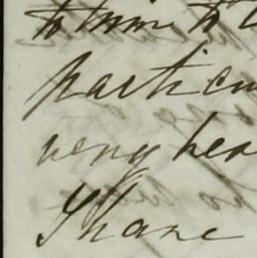 to him to
particu
very hea
I have